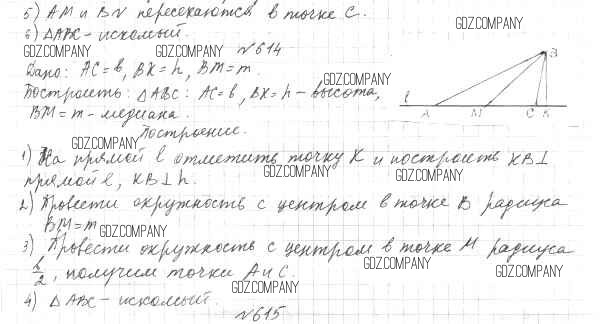 5) AM и BN пересекаются в точке C.
6) △ABC - искомый.
GDZ.COMPANY
GDZ.COMPANY GDZ.COMPANY №614
Дано: AC=b, BK=h, BM=m.
Построить: △ABC: AC=b, BK=h - высота,
BM=m - медиана.
B
l A M C K
GDZ.COMPANY
Построение.
1) На прямой l отметить точку K и построить KB⊥
GDZ.COMPANY GDZ.COMPANY
прямой l, KB⊥h.
2) Провести окружность с центром в точке B радиуса
BM=m
GDZ.COMPANY
3) Провести окружность с центром в точке M радиуса
GDZ.COMPANY GDZ.COMPANY
b/2, получим точки A и C.
GDZ.COMPANY
4) △ABC - искомый.
№615